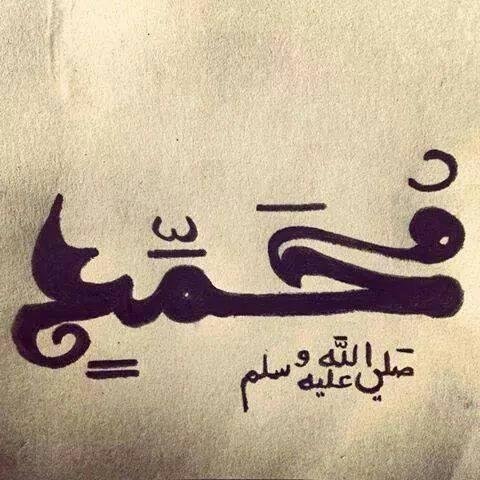 مُحَمَّدٍ
صَلي اللَّه عليه وسلم